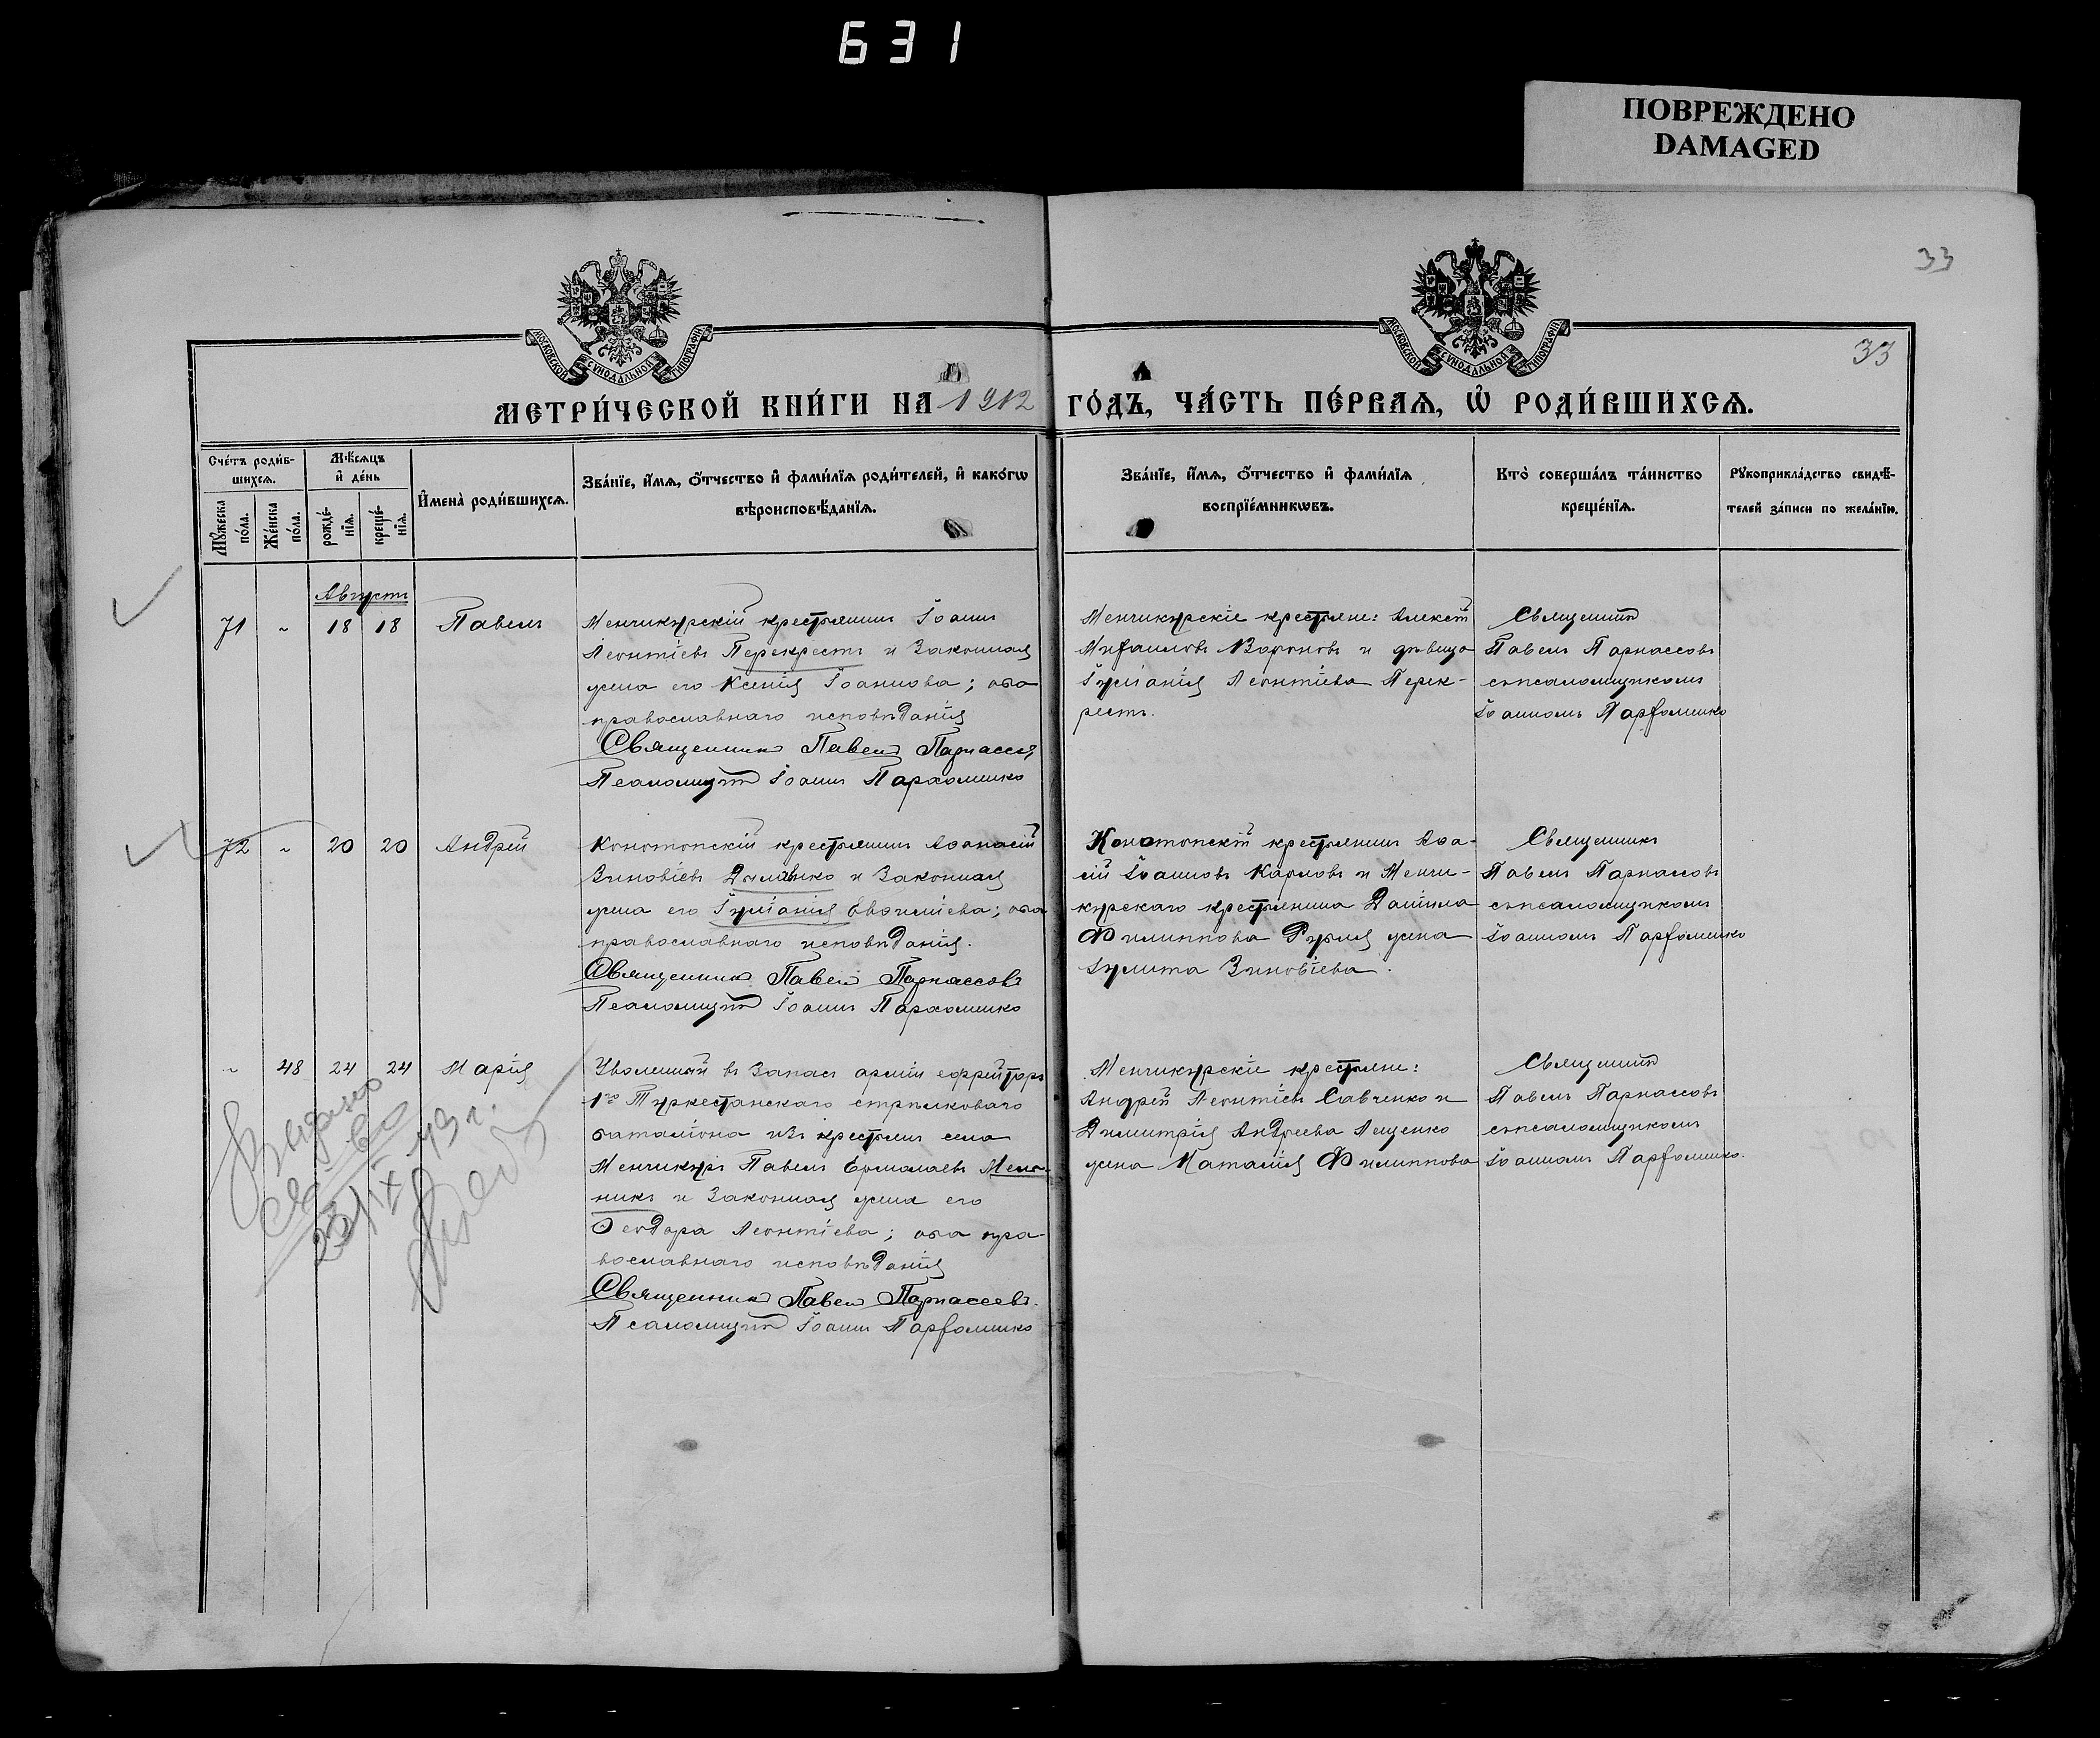 631
ПОВРЕЖДЕНО
DAMAGED
33
33
МОСКОВСКОЙ СѴНОДАЛЬНОЙ ТИПОГРАФІИ
МОСКОВСКОЙ СѴНОДАЛЬНОЙ ТИПОГРАФІИ
МЕТРИ́ЧЕСКОЙ КНИ́ГИ НА 1912 ГО́ДЪ, ЧА́СТЬ ПЕ́РВАѦ, Ѡ҆ РОДИ́ВШИХСѦ.
Сче́тъ роди́в-
шихсѧ.
Мꙋ́жеска по́ла.
Же́нска по́ла.
Мѣ́сѧцъ
и҆ де́нь
рожде́-
нїѧ.
креще́-
нїѧ.
И҆мена̀ роди́вшихсѧ.
Зва́нїе, и҆́мѧ, ѻ҆́тчество и҆ фами́лїѧ роди́телей, и҆ како́гѡ
вѣроисповѣ́данїѧ.
Зва́нїе, и҆́мѧ, ѻ҆́тчество и҆ фами́лїѧ
воспрїе́мникѡвъ.
Кто̀ соверша́лъ та́инство
креще́нїѧ.
Рꙋкоприкла́дство свидѣ́-
телей за́писи по жела́нїю.
Августъ
71 " 18 18 Павелъ
Менчикурскій крестьянинъ Іоаннъ
Леонтіевъ Перекрестъ и законная
жена его Ксенія Іоаннова; оба
православнаго исповѣданія
Священникъ Павелъ Парнассовъ
Псаломщикъ Іоаннъ Пархоменко
Менчикурскіе крестьяне: Алексѣй
Михаиловъ Вороновъ и дѣвица
Іуліанія Леонтіева Перек-
рестъ.
Священникъ
Павелъ Парнассовъ
съ псаломщикомъ
Іоанномъ Пархоменко
72 " 20 20 Андрей
Конотопскій крестьянинъ Аѳанасій
Зиновіевъ и законная
жена его Іуліанія Евѳиміева; оба
православнаго исповѣданія.
Священникъ Павелъ Парнассовъ
Псаломщикъ Іоаннъ Пархоменко
Конотопскій крестьянинъ
Іоанновъ Карповъ и Менчи-
курскаго крестьянина Даніила
Филиппова жена
Іулита Зиновіева.
Священникъ
Павелъ Парнассовъ
съ псаломщикомъ
Іоанномъ Пархоменко
" 48 24 24 Марія
Уволенный въ запасъ арміи ефрейторъ
1го Туркестанскаго стрѣлковаго
баталіона изъ крестьянъ села
Менчикуръ Павелъ Ермолаевъ Мель-
никъ и законная жена его
Ѳеодора Леонтіева; оба пра-
вославнаго исповѣданія
Священникъ Павелъ Парнассовъ.
Псаломщикъ Іоаннъ Пархоменко
Менчикурскіе крестьяне:
Андрей Леонтіевъ Савченко и
Димитрія Андреева Лещенко
жена Наталія Филиппова
Священникъ
Павелъ Парнассовъ
съ псаломщикомъ
Іоанномъ Пархоменко.
Выдано
св-во
23/IX